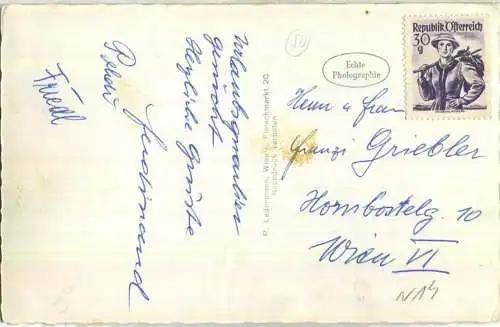 Urlaubsgrüße
gemischt
Herzliche Grüße
Ferdinand
Friedl
P. Ledermann, Wien I., Fleischmarkt 20
Nachdruck verboten
Echte
Photographie
Republik Österreich
30
g
Herrn u Frau
Franzi Griebler
Hornbostelg. 10
Wien VI
N14